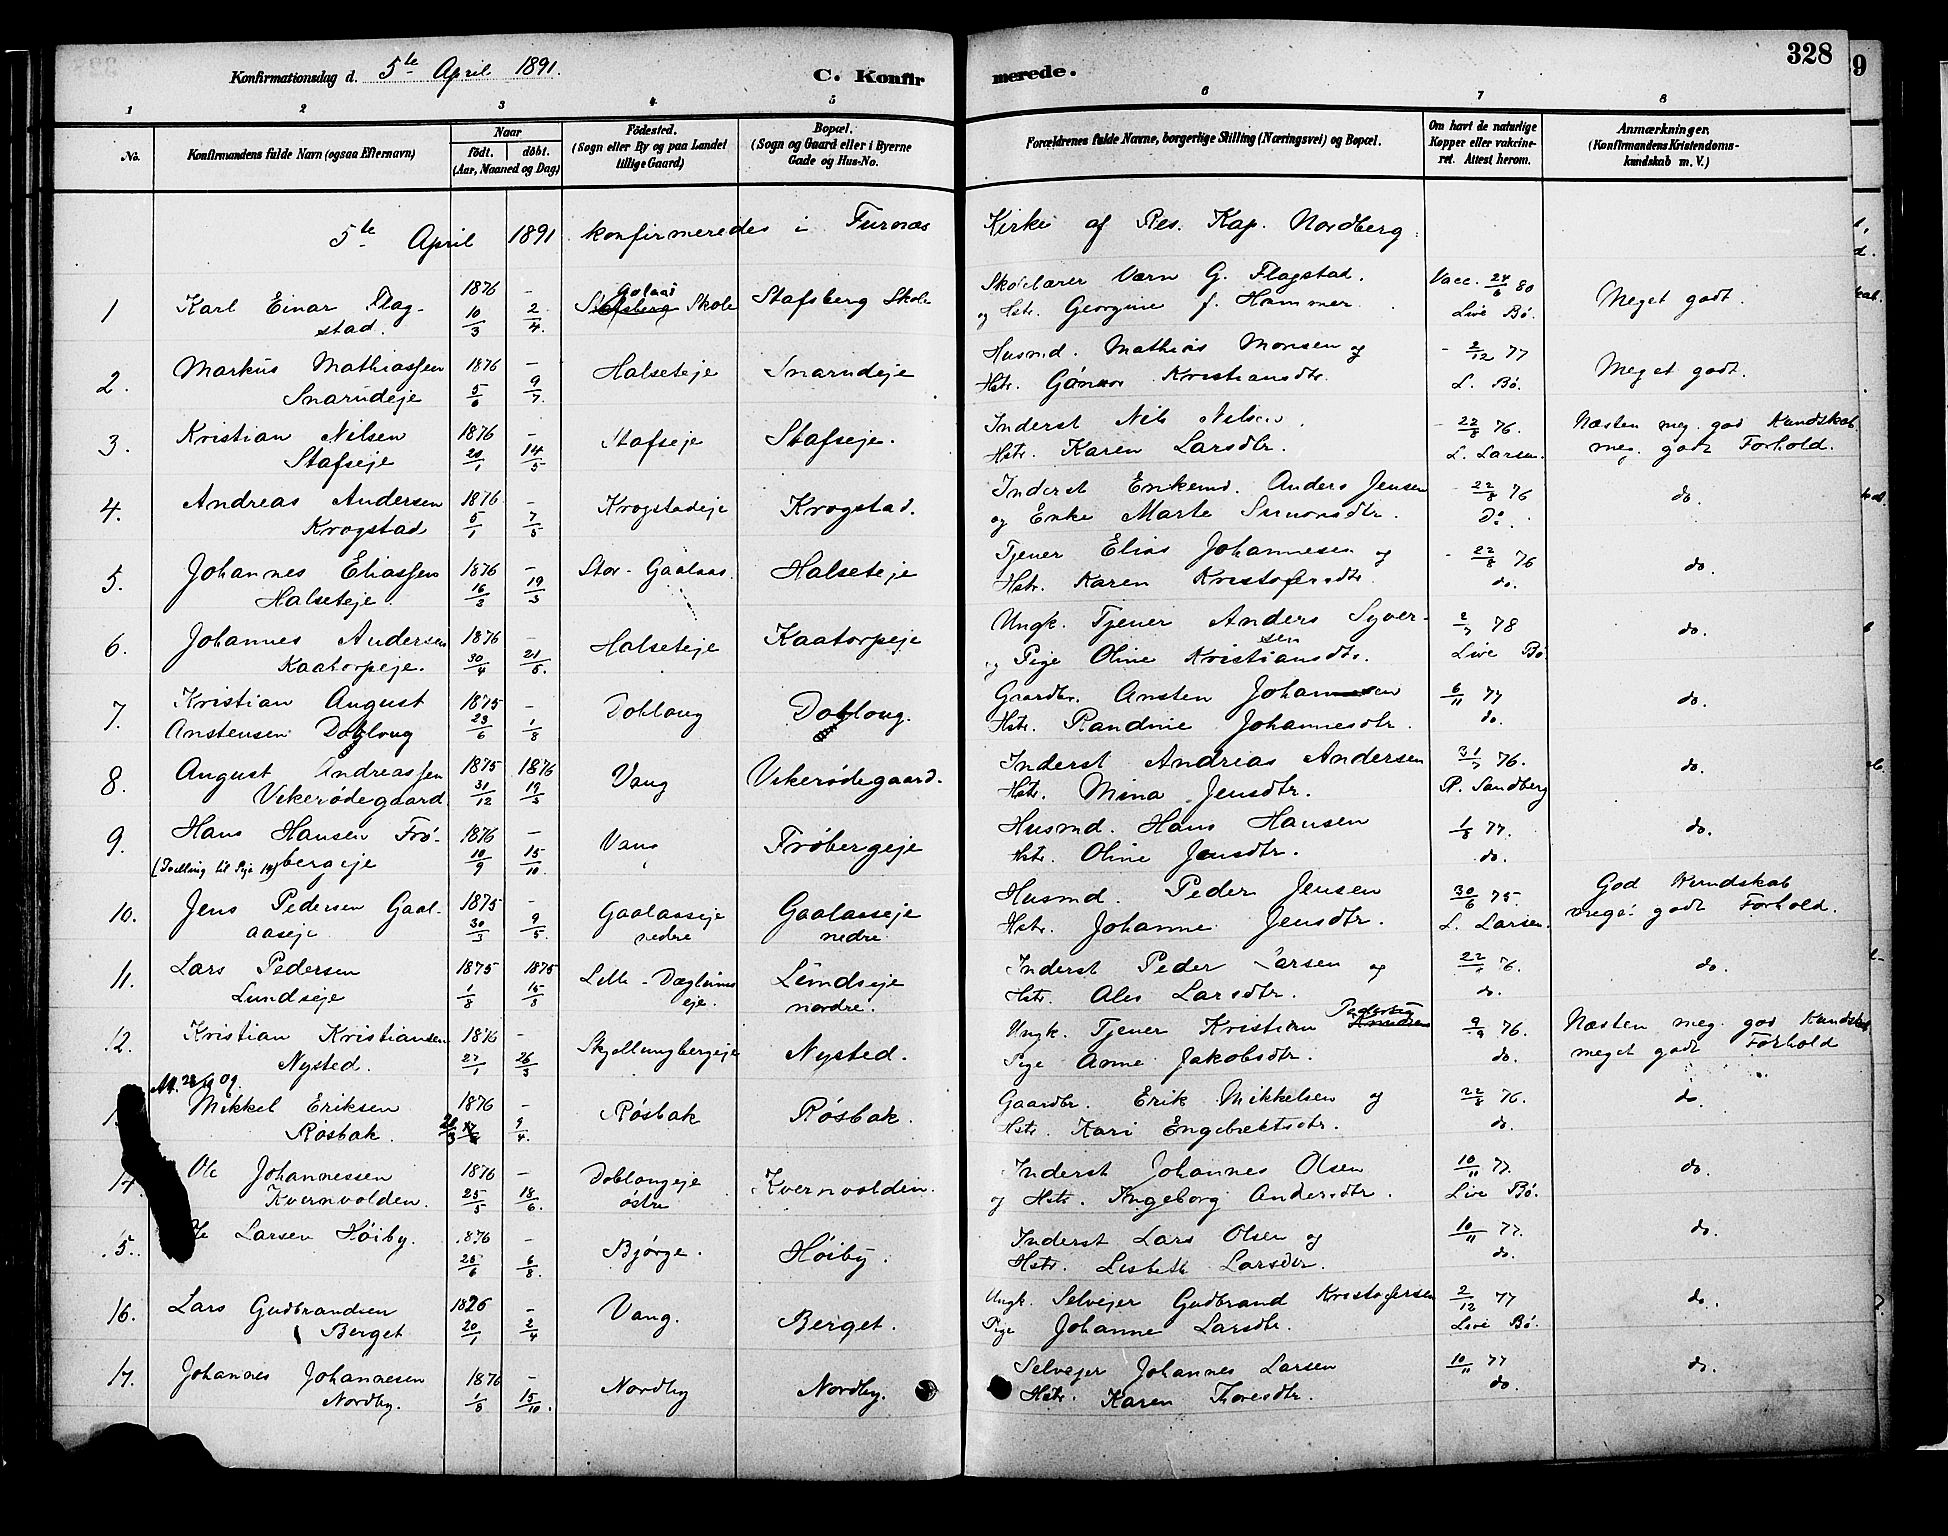 328
9
Konfirmationsdag d. 5te April 1891.
C. Konfirmerede.
1 2 3 4 5 6 7 8
No.
Konfirmandens fulde Navn (ogsaa Efternavn)
Naar
födt. döbt.
(Aar, Maaned og Dag)
Födested.
(Sogn eller By og paa Landet
tillige Gaard)
Bopæl.
(Sogn og Gaard eller i Byerne
Gade og Hus-No.
Forældrenes fulde Navne, borgerlige Stilling (Næringsvei) og Bopæl.
Om havt de naturlige
Kopper eller vakcine-
ret. Attest herom.
Anmærkninger.
(Konfirmandens Kristendoms-
kundskab m. V.)
5te April 1891 konfirmeredes i Furnæs Kirke af Res. Kap. Nordberg.
1 Karl Einar Flag- 1876 - Stafsberg Skole Stafsberg Skole Skolelærer Værn G. Flagstad. Vacc. 24/6 80 Meget godt.
stad. 10/3 2/4 og Hstr. Georgine f. Hammer. Live Bø.
2. Markus Mathiassen 1876 - Halseteje Snarudeje Husmd. Mathias Monsen og - 2/12 77 Meget godt.
Snarudeje 5/6 9/7 Hstr. Kristiansdtr. L. Bø.
3. Kristian Nilsen 1876 - Stafseje Stafseje. Inderst Nils Nilsen - 22/8 76. Næsten meg. god Kundskab
Stafseje 20/1 14/5 Hstr. Karen Larsdtr. L. Larsen. meg. godt Forhold.
4. Andreas Andersen 1876 - Krogstadeje Krogstad. Inderst Enkemd. Anders Jensen - 22/8 76 do.
Krogstad 5/1 7/5 og Enke Marte Simonsdtr. Do.
5. Johannes Eliassen 1876 - Stor-Gaalaas. Halseteje Tjener Elias Johannesen og - 22/8 76 do.
Halseteje. 16/2 19/3 Hstr. Karen Kristofersdtr. do.
6. Johannes Andersen 1876 - Halseteje Kaatorpeje Ungk. Tjener Anders Syver- 2/7 78 do.
Kaatorpeje. 30/4 21/5. og Pige Oline Kristiansdtr. sen Live Bø
7. Kristian August 1875 - Dobloug Dobloug. Gaardbr. Ansten Johannesen 6/11 77 do.
Anstensen Dobloug 23/6 1/8 Hstr. Randine Johannesdtr. do.
8. August Andreassen 1875 1876 Vang Vikerødegaard. Inderst Andreas Andersen 31/7 76. do.
Vikerødegaard 31/12 19/3 Hstr. Mina Jensdtr. P. Sandberg
9. Hans Hansen Frø- 1876 - Vang Frøbergeje Husmd. Hans Hansen 1/8 77. do.
(Tvilling til Pige 14) bergeje 10/9 15/10 Hstr. Oline Jensdtr. do.
10. Jens Pedersen Gaal- 1875 - Gaalaaseje Gaalaaseje Husmd. Peder Jensen 30/6 75. God Kundskab
aaseje 30/3 9/5 nedre nedre Hstr. Johanne Jensdtr. L. Larsen. meget godt Forhold.
11. Lars Pedersen 1875 1875 Lille-Dæglumes Lundseje Inderst Peder Larsen og 76. do.
Lundseje 1/8 15/8 eje. nordre. Hstr. Ales Larsdtr. do.
12. Kristian Kristiansen 1876 - Skjellungbergeje Nysted. Ungk. Tjener Kristian Pedersen 9/9 76. Næsten meg. god Kundskab
Nysted. 27/1 26/3 Pige Anne Jakobsdtr. do. meget godt Forhold
Mikkel Eriksen 1876 - Røsbak Røsbak. Gaardbr. Erik Mikkelsen og 22/8 76. do.
Røsbak. 9/4. Hstr. Kari Engebretsdtr. do.
14. Ole Johannessen 1876 - Doblougeje Kvernvolden. Inderst Johannes Olsen 10/11 77. do.
Kvernvolden. 25/5 18/6. østre og Hstr. Ingeborg Andersdtr. Live Bø.
15. Ole Larsen Høiby. 1876 - Bjørge. Høiby. Inderst Lars Olsen og 10/11 77. do.
25/6 6/8. Hstr. Lisbeth Larsdtr. do.
16. Lars Gudbrandsen 1876 - Vang. Berget. Ungk. Selvejer Gudbrand Kristofersen 2/12 77 do.
Berget 20/1 2/4 Pige Johanne Larsdtr. Live Bø.
17. Johannes Johannesen 1876 - Nordby Nordby. Selvejer Johannes Larsen 10/11 77 do.
Nordby. 1/8 15/10. Hstr. Karen Thoresdtr. do.